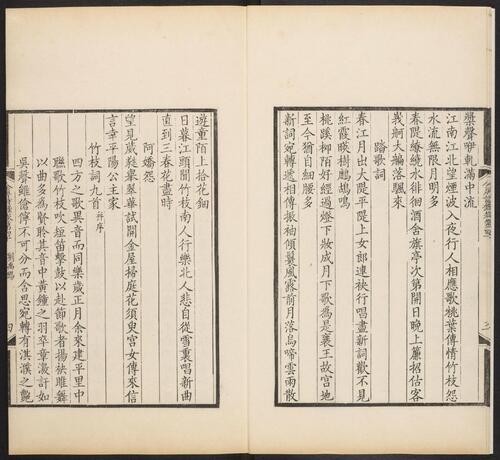 槳聲咿軋滿中流
江南江北望煙波入夜行人相應歌桃葉傳情竹枝怨
水流無限月明多
春隄繚繞水徘徊酒舍旗亭次第開日晚上簾招估客
我舸大艑落颿來
踏歌詞
春江月出大隄平隄上女郎連袂行唱盡新詞歡不見
紅霞暎樹鷓鴣鳴
桃蹊柳陌好經過燈下妝成月下歌爲是襄王故宮地
至今猶自細腰多
新詞宛轉遞相傳振袖傾鬟風露前月落烏啼雲雨散
遊童陌上拾花鈿
日暮江頭聞竹枝南人行樂北人悲自從雪裏唱新曲
直到三春花盡時
阿嬌怨
望見葳蕤舉翠華試開金屋掃庭花須臾宮女傳來信
言幸平陽公主家
竹枝詞九首 并序
四方之歌異音而同樂歲正月余來建平里中
聯歌竹枝吹短笛擊鼓以赴節歌者揚袂睢舞
以曲多爲賢聆其音中黃鐘之羽卒章激訐如
吳聲雖傖儜不可分而含思宛轉有淇濮之豔
劉禹錫
四